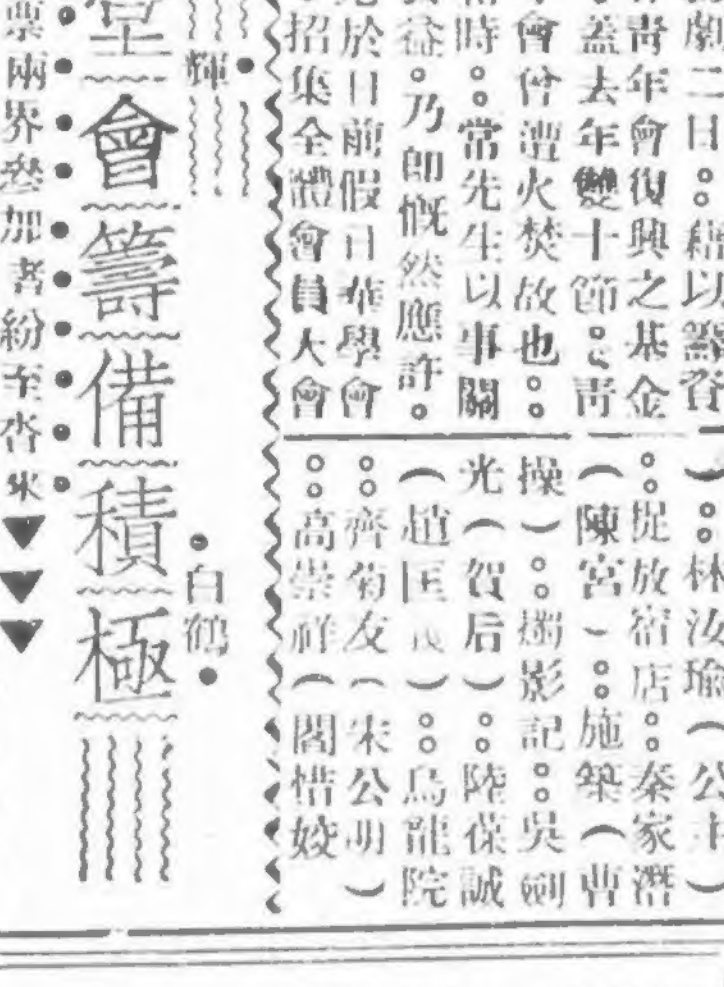 劇二日。藉以籌資
青年會復興之基金
蓋去年雙十節。青
會曾遭火焚故也。
時。常先生以事關
益。乃卽慨然應許。
於日前假日華學會
招集全體會員大會
)。林汝瑜(公主)
。捉放宿店。秦家潛
(陳宮)。施築(曹
操)。燭影記。吳劍
光(賀后)。陸葆誠
(趙匡義)。烏龍院
。齊菊友(宋公明)
。高崇祥(閻惜姣
輝●
●白鶴●
堂會籌備積極
票●兩●界●參●加●者●紛●至●沓●來●▼▼▼